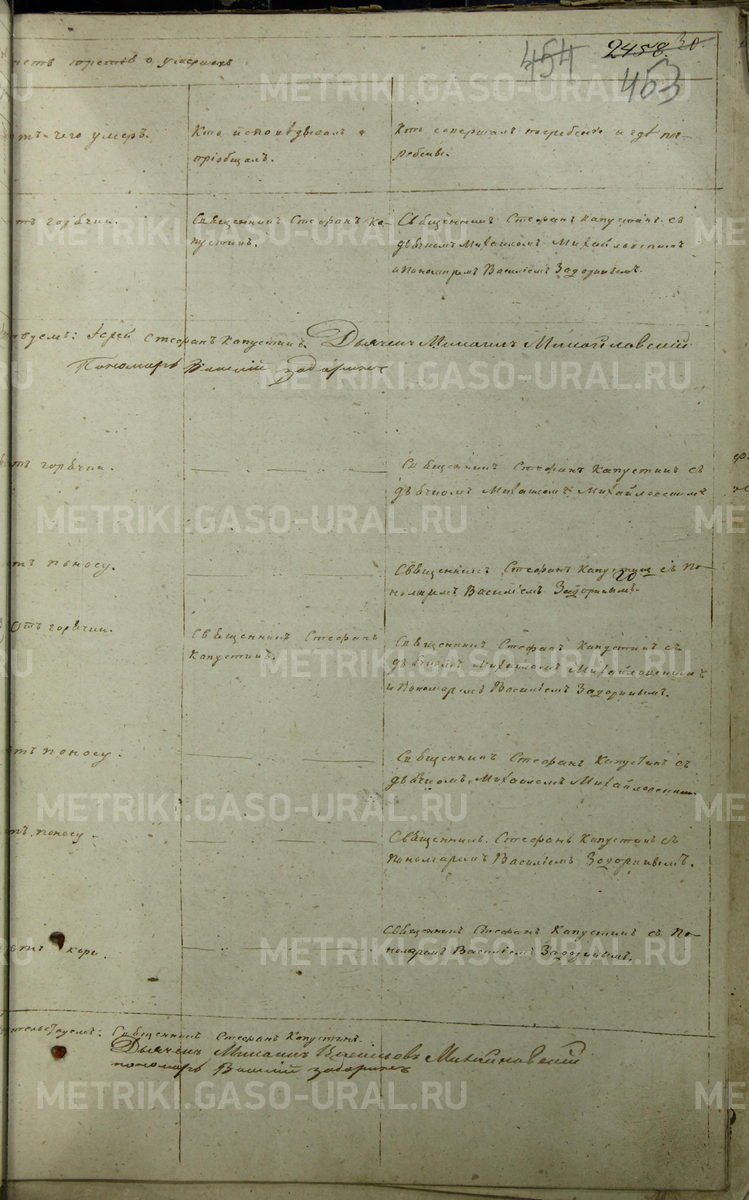 454 2458 30.
453
часть третья о умершихъ
отъ чего умеръ.
Кто исповѣдывалъ и
пріобщалъ.
Кто совершалъ погребеніе и гдѣ по
ребены.
отъ горячки.
Священникъ Стефанъ Ка-
пустинъ.
Священникъ Стефанъ Капустинъ съ
дьячкомъ Михаиломъ Михайловскимъ
и Пономаремъ Василіемъ Задорнымъ.
Іерей Стефанъ Капустинъ. Дьячекъ Михаилъ Михайловскій
Пономарь Василій
отъ горячки.
Священникъ Стефанъ Капустинъ съ
дьячкомъ Михаиломъ Михайловскимъ
отъ поносу.
Священникъ Стефанъ Капустинъ съ По-
номаремъ Василіемъ
Отъ горячки.
Священникъ Стефанъ
Капустинъ.
Священникъ Стефанъ Капустинъ съ
дьячкомъ Михаиломъ Михайловскимъ
и Пономаремъ Василіемъ Задорнымъ.
отъ поносу.
Священникъ Стефанъ Капустинъ съ
дьячкомъ Михаиломъ Михайловскимъ
отъ поносу.
Священникъ Стефанъ Капустинъ съ
Пономаремъ Василіемъ Задорнымъ.
отъ кори.
Священникъ Стефанъ Капустинъ съ По-
номаремъ Василіемъ Задорнымъ.
Священникъ Стефанъ Капустинъ.
Дьячекъ Михаилъ Васильевъ Михайловскій
пономарь Василій
METRIKI.GASO-URAL.RU